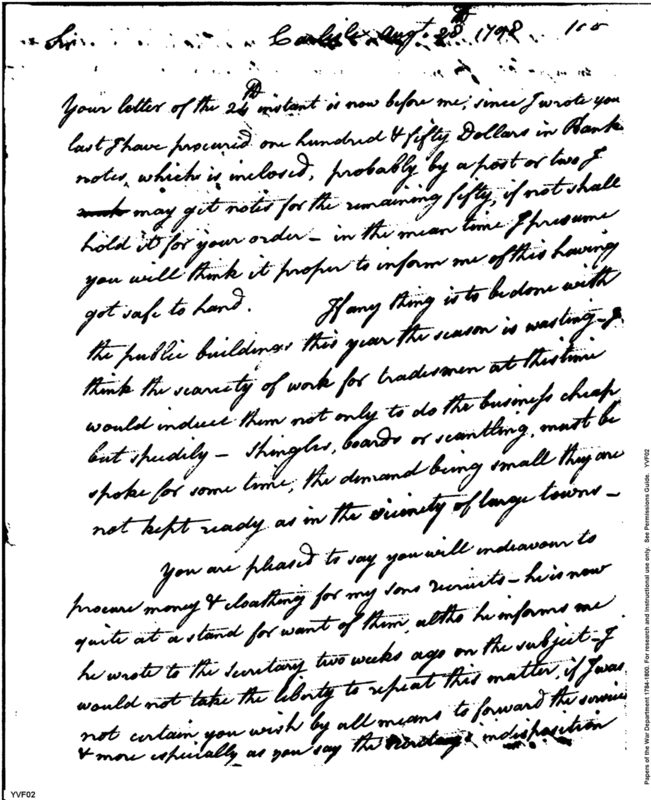 Sir. Carlisle Augt. 28th 1798
Your letter of the 24th instant is now before me, since I wrote you
last I have procured one hundred & fifty Dollars in Bank
notes, which is inclosed, probably by a post or two I
may get notes for the remaining fifty, if not shall
hold it for your order – in the mean time I presume
you will think it proper to inform me of this having
got safe to hand. If any thing is to be done with
the public buildings this year the season is wasting – I
think the scarcety of work for tradesmen at this time
would induce them not only to do the business cheap
but speedily – Shingles, boards or scantling, must be
spoke for some time, the demand being small they are
not kept ready as in the vicinety of large towns –
You are pleased to say you will indeavour to
procure money & cloathing for my sons recruits – he is now
quite at a stand for want of them, altho he informs me
he wrote to the secretary two weeks ago on the subject – I
would not take the liberty to repeat this matter, if I was
not certain you wish by all means to forward the service
& more especially as you say the secretary's indisposition
YVF02
Papers of the War Department 1784-1800. For research and instructional use only. See Permissions Guide. YVF02